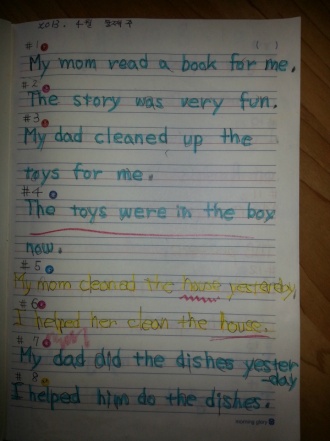 2013. 4월
#1
My mom read a book for me.
#2
The story was very fun.
#3
My dad cleaned up the
toys for me.
#4
The toys were in the box
now.
#5
My mom cleaned the house yesterday.
#6
I helped her clean the house.
#7
My dad did the dishes yester
-day
#8
I helped him do the dishes.
morning glory